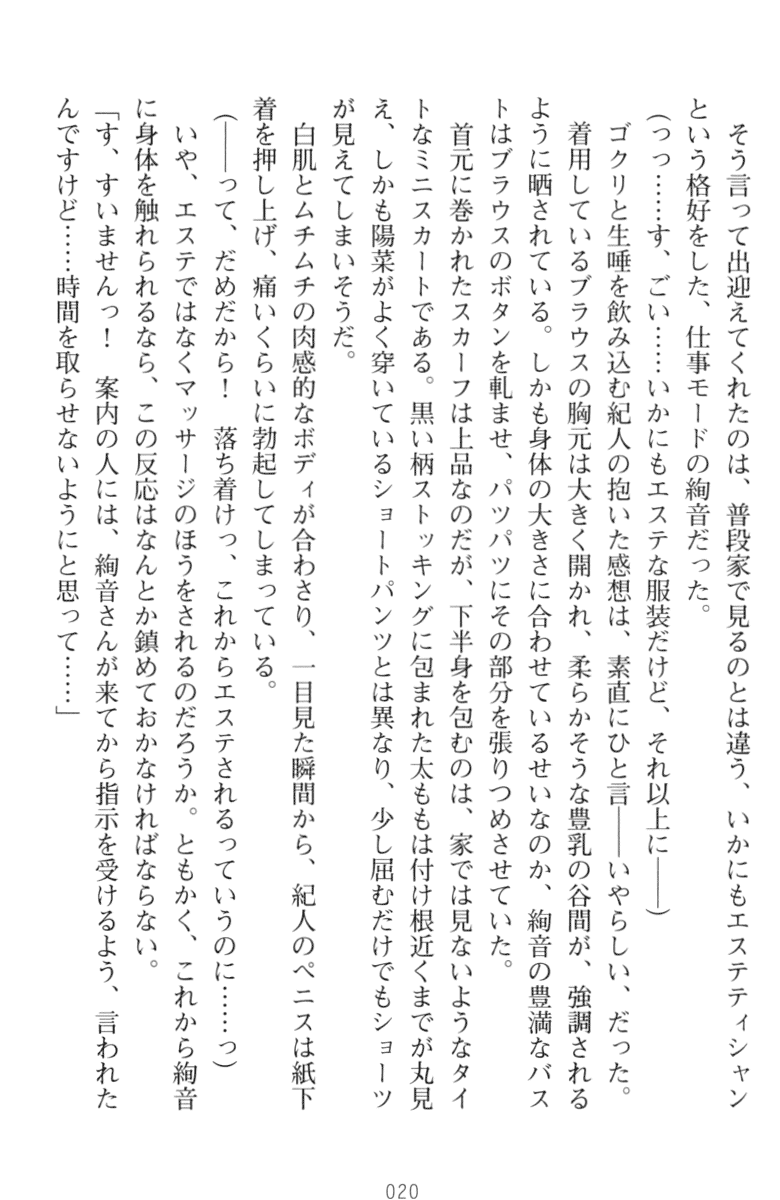 そう言って出迎えてくれたのは、普段家で見るのとは違う、いかにもエステティシャン
という格好をした、仕事モードの絢音だった。
(っっ……す、ごい……いかにもエステな服装だけど、それ以上に――)
ゴクリと生唾を飲み込む紀人の抱いた感想は、素直にひと言――いやらしい、だった。
着用しているブラウスの胸元は大きく開かれ、柔らかそうな豊乳の谷間が、強調される
ように晒されている。しかも身体の大きさに合わせているせいなのか、絢音の豊満なバス
トはブラウスのボタンを軋ませ、パツパツにその部分を張りつめさせていた。
首元に巻かれたスカーフは上品なのだが、下半身を包むのは、家では見ないようなタイ
トなミニスカートである。黒い柄ストッキングに包まれた太ももは付け根近くまでが丸見
え、しかも陽菜がよく穿いているショートパンツとは異なり、少し屈むだけでもショーツ
が見えてしまいそうだ。
白肌とムチムチの肉感的なボディが合わさり、一目見た瞬間から、紀人のペニスは紙下
着を押し上げ、痛いくらいに勃起してしまっている。
(――って、だめだから！　落ち着けっ、これからエステされるっていうのに……っ)
いや、エステではなくマッサージのほうをされるのだろうか。ともかく、これから絢音
に身体を触れられるなら、この反応はなんとか鎮めておかなければならない。
「す、すいませんっ！　案内の人には、絢音さんが来てから指示を受けるよう、言われた
んですけど……時間を取らせないようにと思って……」
020